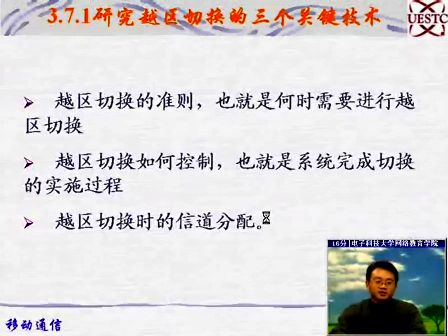 3.7.1研究越区切换的三个关键技术
UESTC
越区切换的准则，也就是何时需要进行越
区切换
越区切换如何控制，也就是系统完成切换
的实施过程
越区切换时的信道分配。
16分|电子科技大学网络教育学院
移动通信